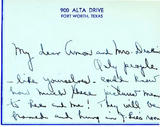 900 ALTA DRIVE
FORT WORTH, TEXAS
My dear Amon and Mrs.
Only people
like yourselves could know
how much these pictures mean
to Bess and me! They will be
framed and hung in